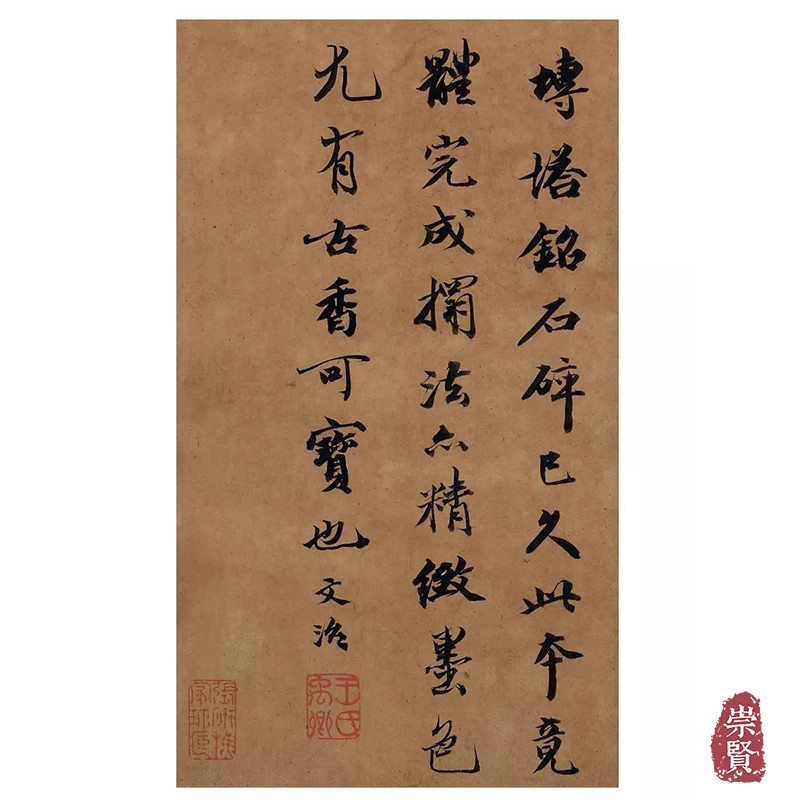 塼塔銘石碎已久此本竟
體完成搨法亦精緻墨色
尤有古香可寶也文治
王氏禹卿
崇賢